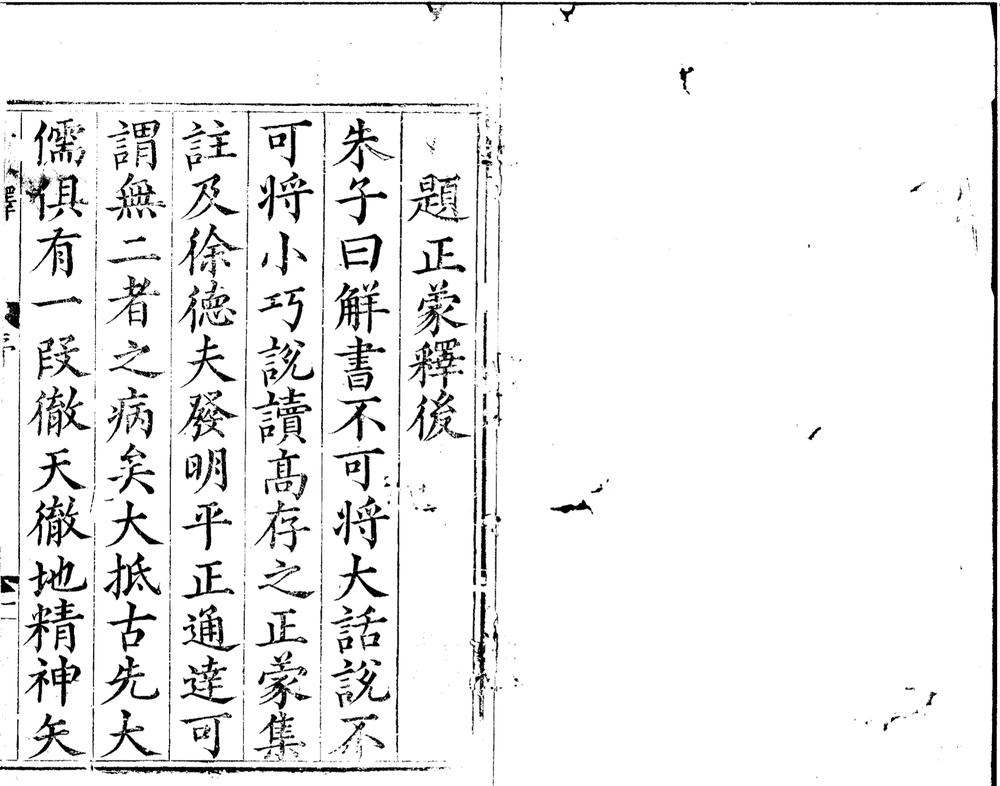 題正蒙釋後
朱子曰解書不可將大話說不
可將小巧說讀高存之正蒙集
註及徐德夫發明平正通達可
謂無二者之病矣大抵古先大
儒俱有一段徹天徹地精神矢
釋
序
二